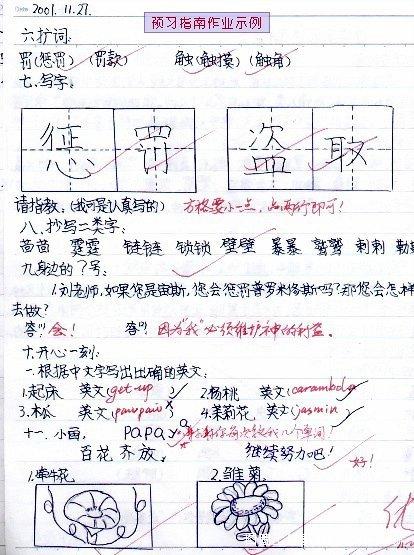 Date 2001.11.27.
预习指南作业示例
六扩词:
罚(惩罚) (罚款) 触(触摸)(触角)
七.写字:
惩 罚 盗 取
请指教:(我可是认真写的) 方格要小一点,占两行即可!
八.抄写二类字:
苗苗 霆霆 链链 锁锁 壁壁 暴暴 鹫鹫 刺刺 勒勒
九身边的?号:
1.刘老师,如果您是宙斯,您会惩罚普罗米修斯吗?那您会怎样
去做?
答:会! 答: 因为“我”必须维护神的利益。
十.开心一刻:
一.根据中文字写出正确的英文:
1.起床 英文(get up) 2.杨桃 英文(carambola)
3.木瓜 英文(pawpaw) 4.茉莉花 英文(jasmin)
十一.小画, papaya
百花齐放, 继续努力吧! 好!
1.牵牛花 2.雏菊
优